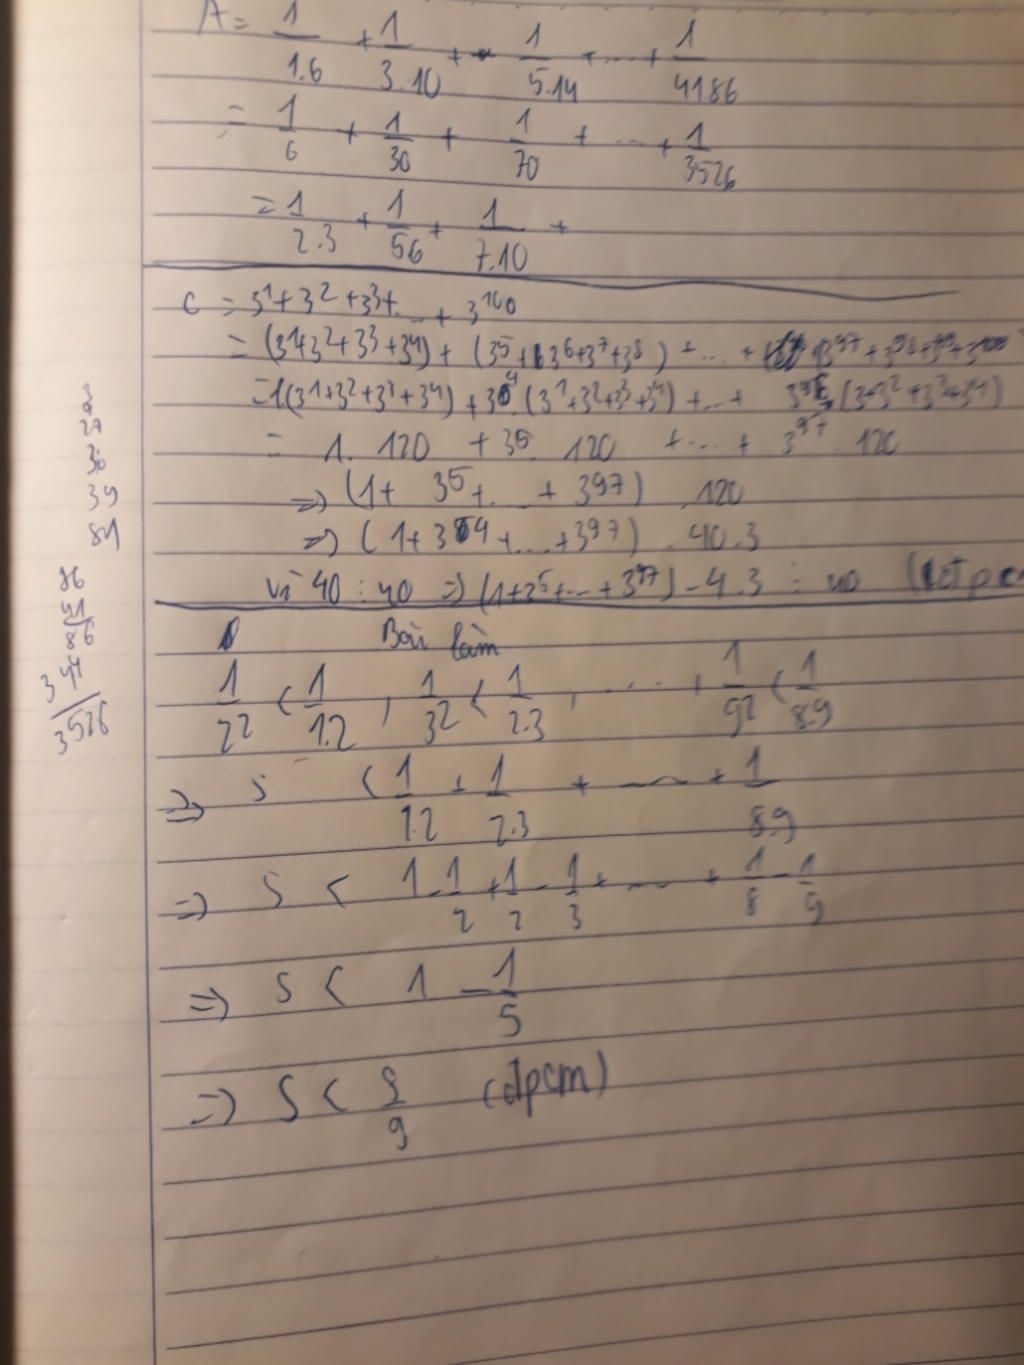 A = 1/1.6 + 1/3.10 + 1/5.14 + ... + 1/41.86
= 1/6 + 1/30 + 1/70 + ... + 1/3526
= 1/2.3 + 1/56 + 1/7.10 +
C = 3^1 + 3^2 + 3^3 + ... + 3^100
= (3^1+3^2+3^3+3^4) + (3^5+3^6+3^7+3^8) + ... + (3^97+3^98+3^99+3^100)
= 1(3^1+3^2+3^3+3^4) + 3^4.(3^1+3^2+3^3+3^4) + ... + (3+3^2+3^3+3^4)
= 1. 120 + 35. 120 + ... + 3^97. 120
=> (1+ 35+ ... + 397) .120
=> (1+ 34+ ... +397) . 40.3
vì 40 : 40 => (1+3^5+...+3^97) - 4.3 : 40
3
27
36
39
81
86
41
86
344
3526
Bài làm
1/2^2 < 1/1.2 , 1/3^2 < 1/2.3 , .... , 1/9^2 < 1/8.9
=> S < 1/1.2 + 1/2.3 + ... + 1/8.9
=> S < 1 - 1/2 + 1/2 - 1/3 + ... + 1/8 - 1/9
=> S < 1 - 1/5
=> S < 8/9 (đpcm)